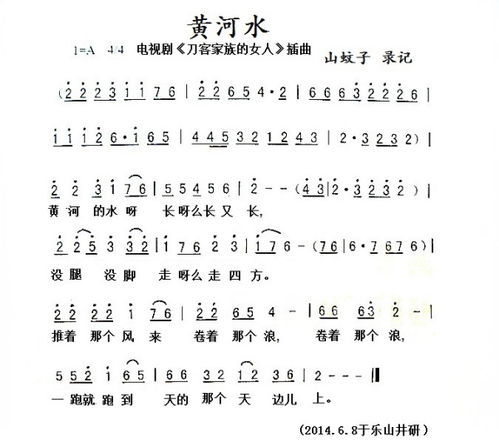 黄河水
1=A 4/4 电视剧《刀客家族的女人》插曲
山蚊子 录记
(2 2 2 3 1 1 7 6 | 2 2 6 5 4· 2 | 6 6 6 3 2 2 2 6 |
1 1 1 2 6· 1 6 5 | 4 4 5 3 2 1 2 4 3 | 2· 3 2 3 2) |
2 2 3 1 7 6 | 5 5 4 5 6 | 2 - - (4 3 | 2· 3 2 3 2) |
黄 河 的 水 呀 长 呀 么 长 又 长,
2 2 5 3 3 2 | 1 7 6 2 2 4 3 | 1 7 6 - (6 | 6· 7 6 7 6) |
没 腿 没 脚 走 呀 么 走 四 方。
2 2 2 2 1 7 6 | 2 2 6 5 4 - | 6 6 6 3 2 - |
推着 那个 风 来 卷着 那个 浪, 卷着 那个 浪,
5 5 2 1 6 5 | 6 6 3 2 1 2 1 6 | 2 - - - |
一 跑就 跑 到 天的 那个 天 边儿 上。
(2014.6.8于乐山井研)